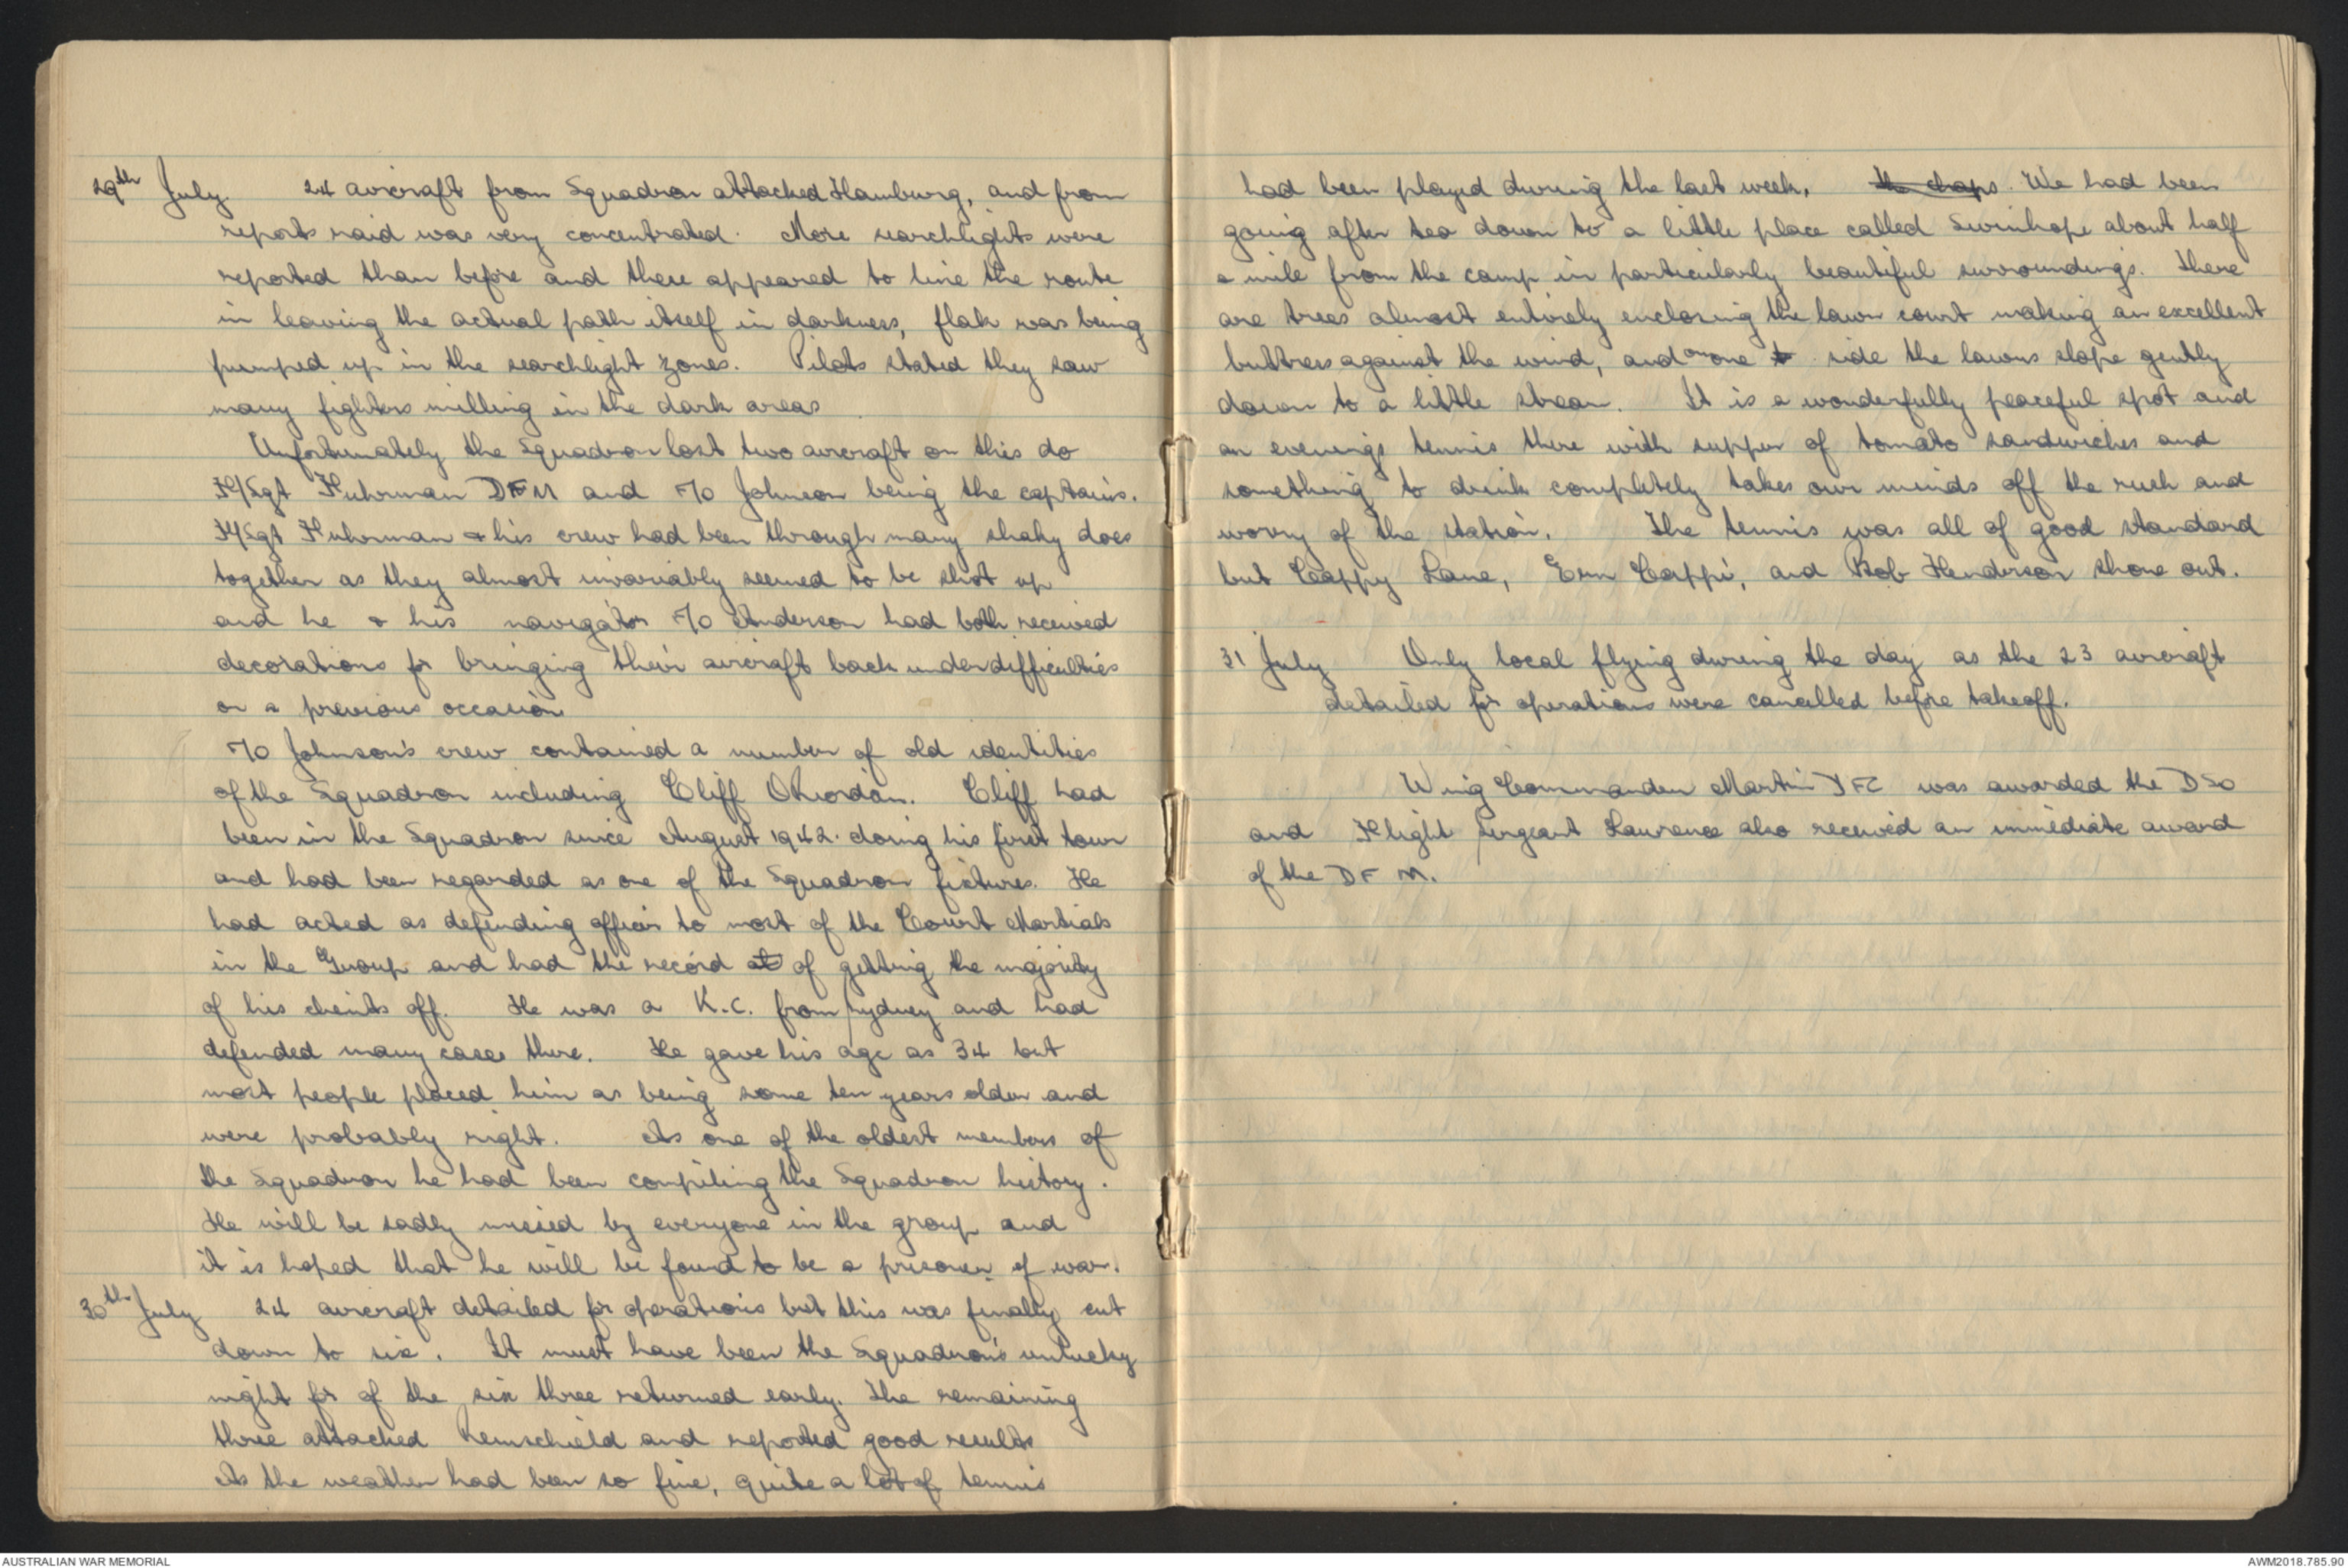 29th July 24 aircraft from Squadron attacked Hamburg, and from
reports raid was very concentrated. More searchlights were
reported than before and these appeared to line the route
in leaving the actual path itself in darkness, flak was being
pumped up in the searchlight zones. Pilots stated they saw
many fighters milling in the dark areas
Unfortunately the Squadron lost two aircraft on this do
F/Sgt Fuhrman DFM and F/O Johnson being the captains.
F/Sgt Fuhrman & his crew had been through many shaky does
together as they almost invariably seemed to be shot up
and he & his navigator F/O Anderson had both received
decorations for bringing their aircraft back under difficulties
on a previous occasion
F/O Johnson's crew contained a number of old identities
of the Squadron including Cliff O'Riordan. Cliff had
been in the Squadron since August 1942. doing his first tour
and had been regarded as one of the Squadron fixtures. He
had acted as defending officer to most of the Court Martials
in the Group and had the record at of getting the majority
of his clients off. He was a K.C. from Sydney and had
defended many cases there. He gave his age as 34 but
most people placed him as being some ten years older and
were probably right. As one of the oldest members of
the Squadron he had been compiling the Squadron history.
He will be sadly missed by everyone in the group and
it is hoped that he will be found to be a prisoner of war.
30th July 24 aircraft detailed for operations but this was finally cut
down to six. It must have been the Squadron's unlucky
night for of the six three returned early. The remaining
three attacked Remschield and reported good results
As the weather had been so fine, quite a lot of tennis
had been played during the last week. the chaps. We had been
going after tea down to a little place called Swinhope about half
a mile from the camp in particularly beautiful surroundings. There
are trees almost entirely enclosing the lawn court making an excellent
buttress against the wind, and on one side the lawns slope gently
down to a little stream. It is a wonderfully peaceful spot and
an evenings tennis there with supper of tomato sandwiches and
something to drink completely takes our minds off the rush and
worry of the station. The tennis was all of good standard
but Cappy Lane, Ern Cappi, and Bob Henderson shone out.
31 July Only local flying during the day as the 23 aircraft
detailed for operations were cancelled before takeoff.
Wing Commander Martin DFC was awarded the DSO
and Flight Sergeant Lawrence also received an immediate award
of the DFM.
AUSTRALIAN WAR MEMORIAL
AWM2018.785.90